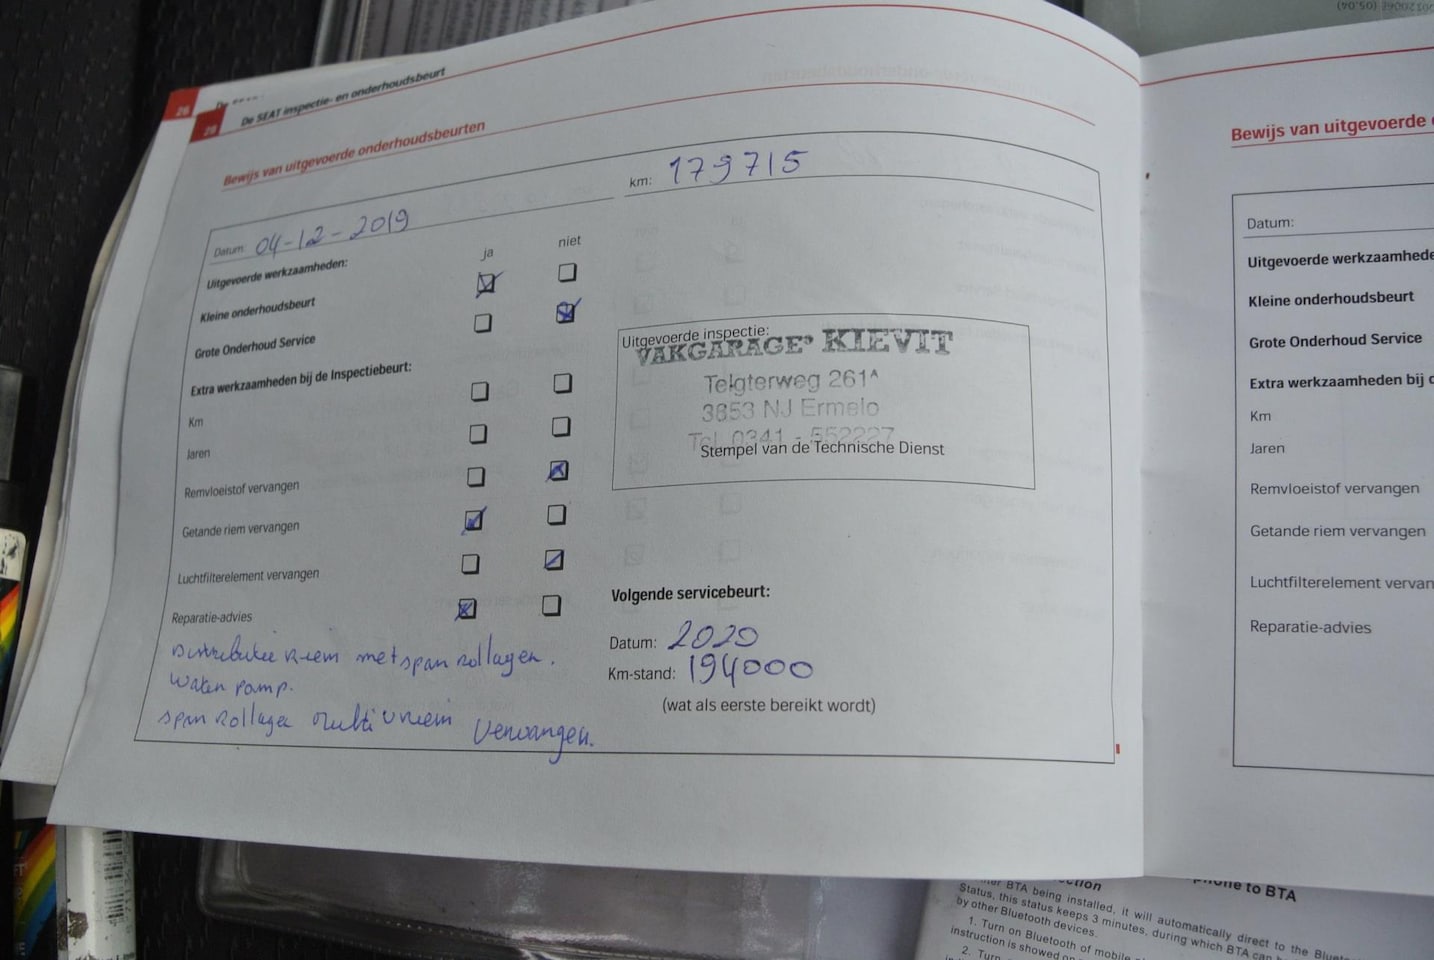 26
29 De SEAT inspectie- en onderhoudsbeurt
Bewijs van uitgevoerde onderhoudsbeurten
Datum: 04-12-2019
km: 179715
Uitgevoerde werkzaamheden:
ja niet
Kleine onderhoudsbeurt
Grote Onderhoud Service
Extra werkzaamheden bij de Inspectiebeurt:
Km
Jaren
Remvloeistof vervangen
Getande riem vervangen
Luchtfilterelement vervangen
Reparatie-advies
Distributie riem met span rollagen.
Water pomp.
span rollagen multi v riem vervangen.
Uitgevoerde inspectie:
VAKGARAGE KIEVIT
Telgterweg 261A
3853 NJ Ermelo
Tel. 0341 - 552227
Stempel van de Technische Dienst
Volgende servicebeurt:
Datum: 2020
Km-stand: 194000
(wat als eerste bereikt wordt)
Bewijs van uitgevoerde
Datum:
Uitgevoerde werkzaamhede
Kleine onderhoudsbeurt
Grote Onderhoud Service
Extra werkzaamheden bij
Km
Jaren
Remvloeistof vervangen
Getande riem vervangen
Luchtfilterelement vervan
Reparatie-advies
phone to BTA
BTA being installed, it will automatically direct to the
Status, this status keeps 3 minutes, during which BTA can
by other Bluetooth devices.
1. Turn on Bluetooth of mobile
instruction is showed on
2. Turn